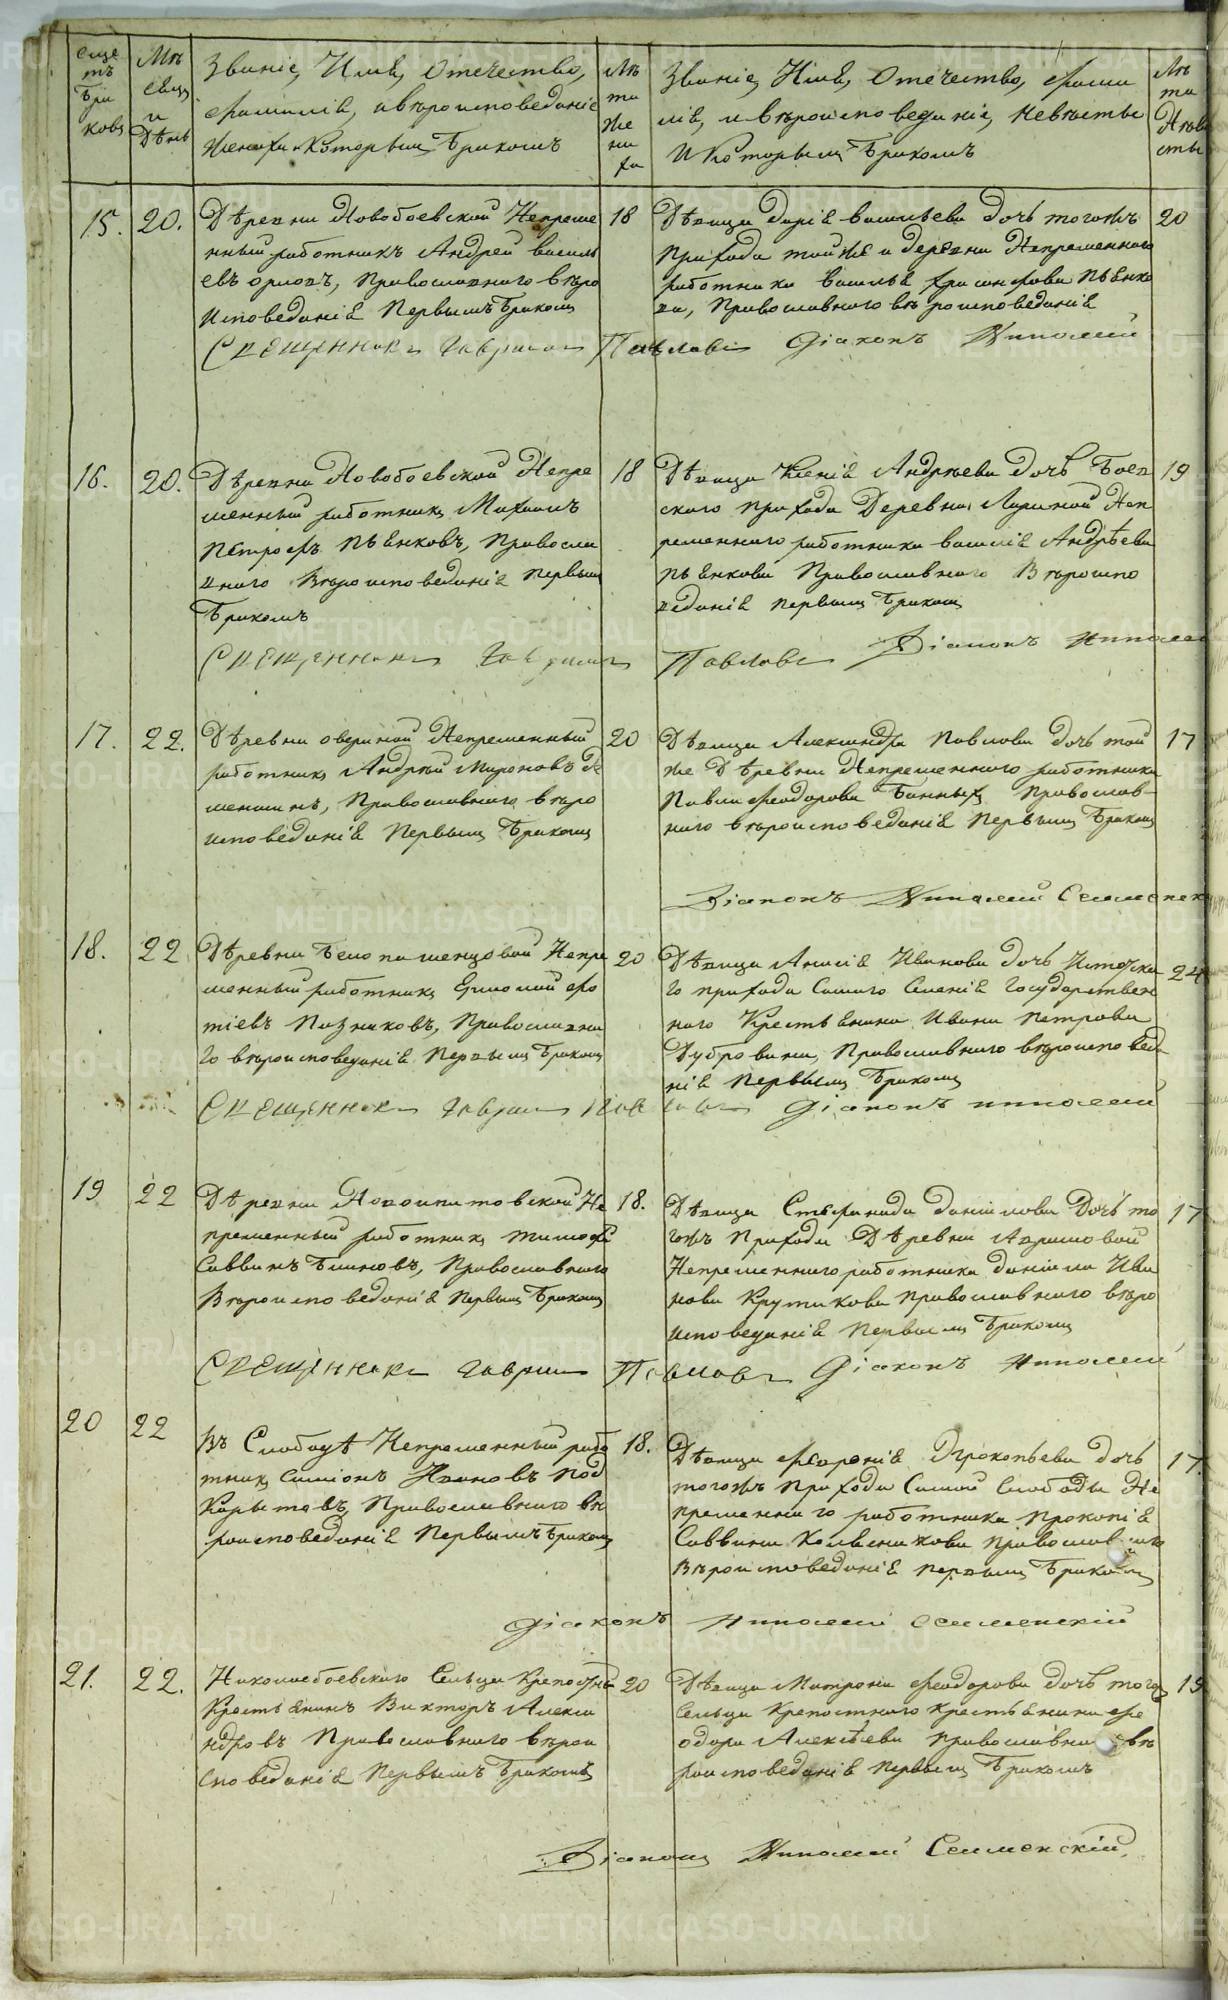 Счетъ браковъ
Мѣсяцъ и День
Званіе, Имя, Отечество,
фамилія, и вѣроисповеданіе
Жениха и Которымъ Бракомъ
Лѣта Жениха
Званіе, Имя, Отечество, фами
лія, и вѣроисповеданіе, Невѣсты
И Которымъ Бракомъ
Лѣта Невѣсты
15. 20.
Дѣревни Новобоевской Непреме
нный работникъ Андрей василь
евъ орловъ, Православного вѣро
Исповеданія Первымъ Бракомъ
18
Дѣвица Дарія васильева Дочь тогожъ
прихода тойже и деревни Непременного
работника василья Пьянко
ва, Православного вѣроисповеданія
20
Священникъ Гавриилъ Павловъ Діаконъ Николай
16. 20.
Дѣревни Новобоевской Непре
менный работникъ Михаилъ
Пьянковъ, Правосла
вного Вѣроисповеданія первымъ
Бракомъ
18
Дѣвица Ксенія Андрѣева Дочь Боев
ского прихода Деревни Неп
ременного работника василія Андрѣева
пьянкова Православного Вѣроиспо
веданія первымъ Бракомъ
19
Священникъ Гавриилъ Павловъ Діаконъ Николай
17. 22.
Дѣревни овериной Непременный
работникъ Андрей Мироновъ
Православного вѣро
исповеданія Первымъ Бракомъ
20
Дѣвица Александра Павлова Дочь той
же Дѣревни Непременного работника
Павла Феодорова Банныхъ Православ-
ного вѣроисповеданія Первымъ Бракомъ
17
Діаконъ Николай Селменскій
18. 22
Дѣревни Белоношенцовой Непре
менный работникъ Ермолай фо
тіевъ Позняковъ, Православна
го вѣроисповеданія Первымъ Бракомъ
20
Дѣвица Анисія Иванова Дочь Истокска
го прихода Самаго Селенія Государствен
ного Крестьянина Ивана Петрова
Дубровина, Православного вѣроисповеда
нія Первымъ Бракомъ
24
Священникъ Гавриилъ Павловъ Діаконъ николай
19 22
Дѣревни Новоипатовской Не
пременный работникъ тимофей
Саввинъ Блиновъ, Православного
Вѣроисповеданія Первымъ Бракомъ
18.
Дѣвица Стефанида даніилова Дочь то
гожъ Прихода Дѣревни Абрамовой
Непременного работника даніила Ива
нова Крутикова Православного вѣро
исповеданія Первымъ Бракомъ
17
Священникъ Гавриилъ Павловъ Діаконъ Николай
20 22
Въ Слободѣ Непременный рабо
тникъ симіонъ Ивановъ Под
Корытовъ, Православного вѣ
роисповеданія Первымъ Бракомъ
18.
Дѣвица Феврония Прокопьева дочь
тогожъ прихода Самой Слободы Не
пременна го работника прокопія
Саввина Колясникова Православного
Вѣроисповеданія первымъ Бракомъ
17.
Діаконъ Николай Селменскій
21. 22.
Николаебоевского Сельца Крепостный
Крестьянинъ Викторъ Алекса
ндровъ Православного вѣрои
споведанія Первымъ Бракомъ
20
Дѣвица Матрона Феодорова дочь тогожъ
Сельца Крепостного Крестьянина фе
одора Алексѣева Православного вѣ
роисповеданія первымъ Бракомъ
19
Діаконъ Николай Селменскій
METRIKI.GASO-URAL.RU